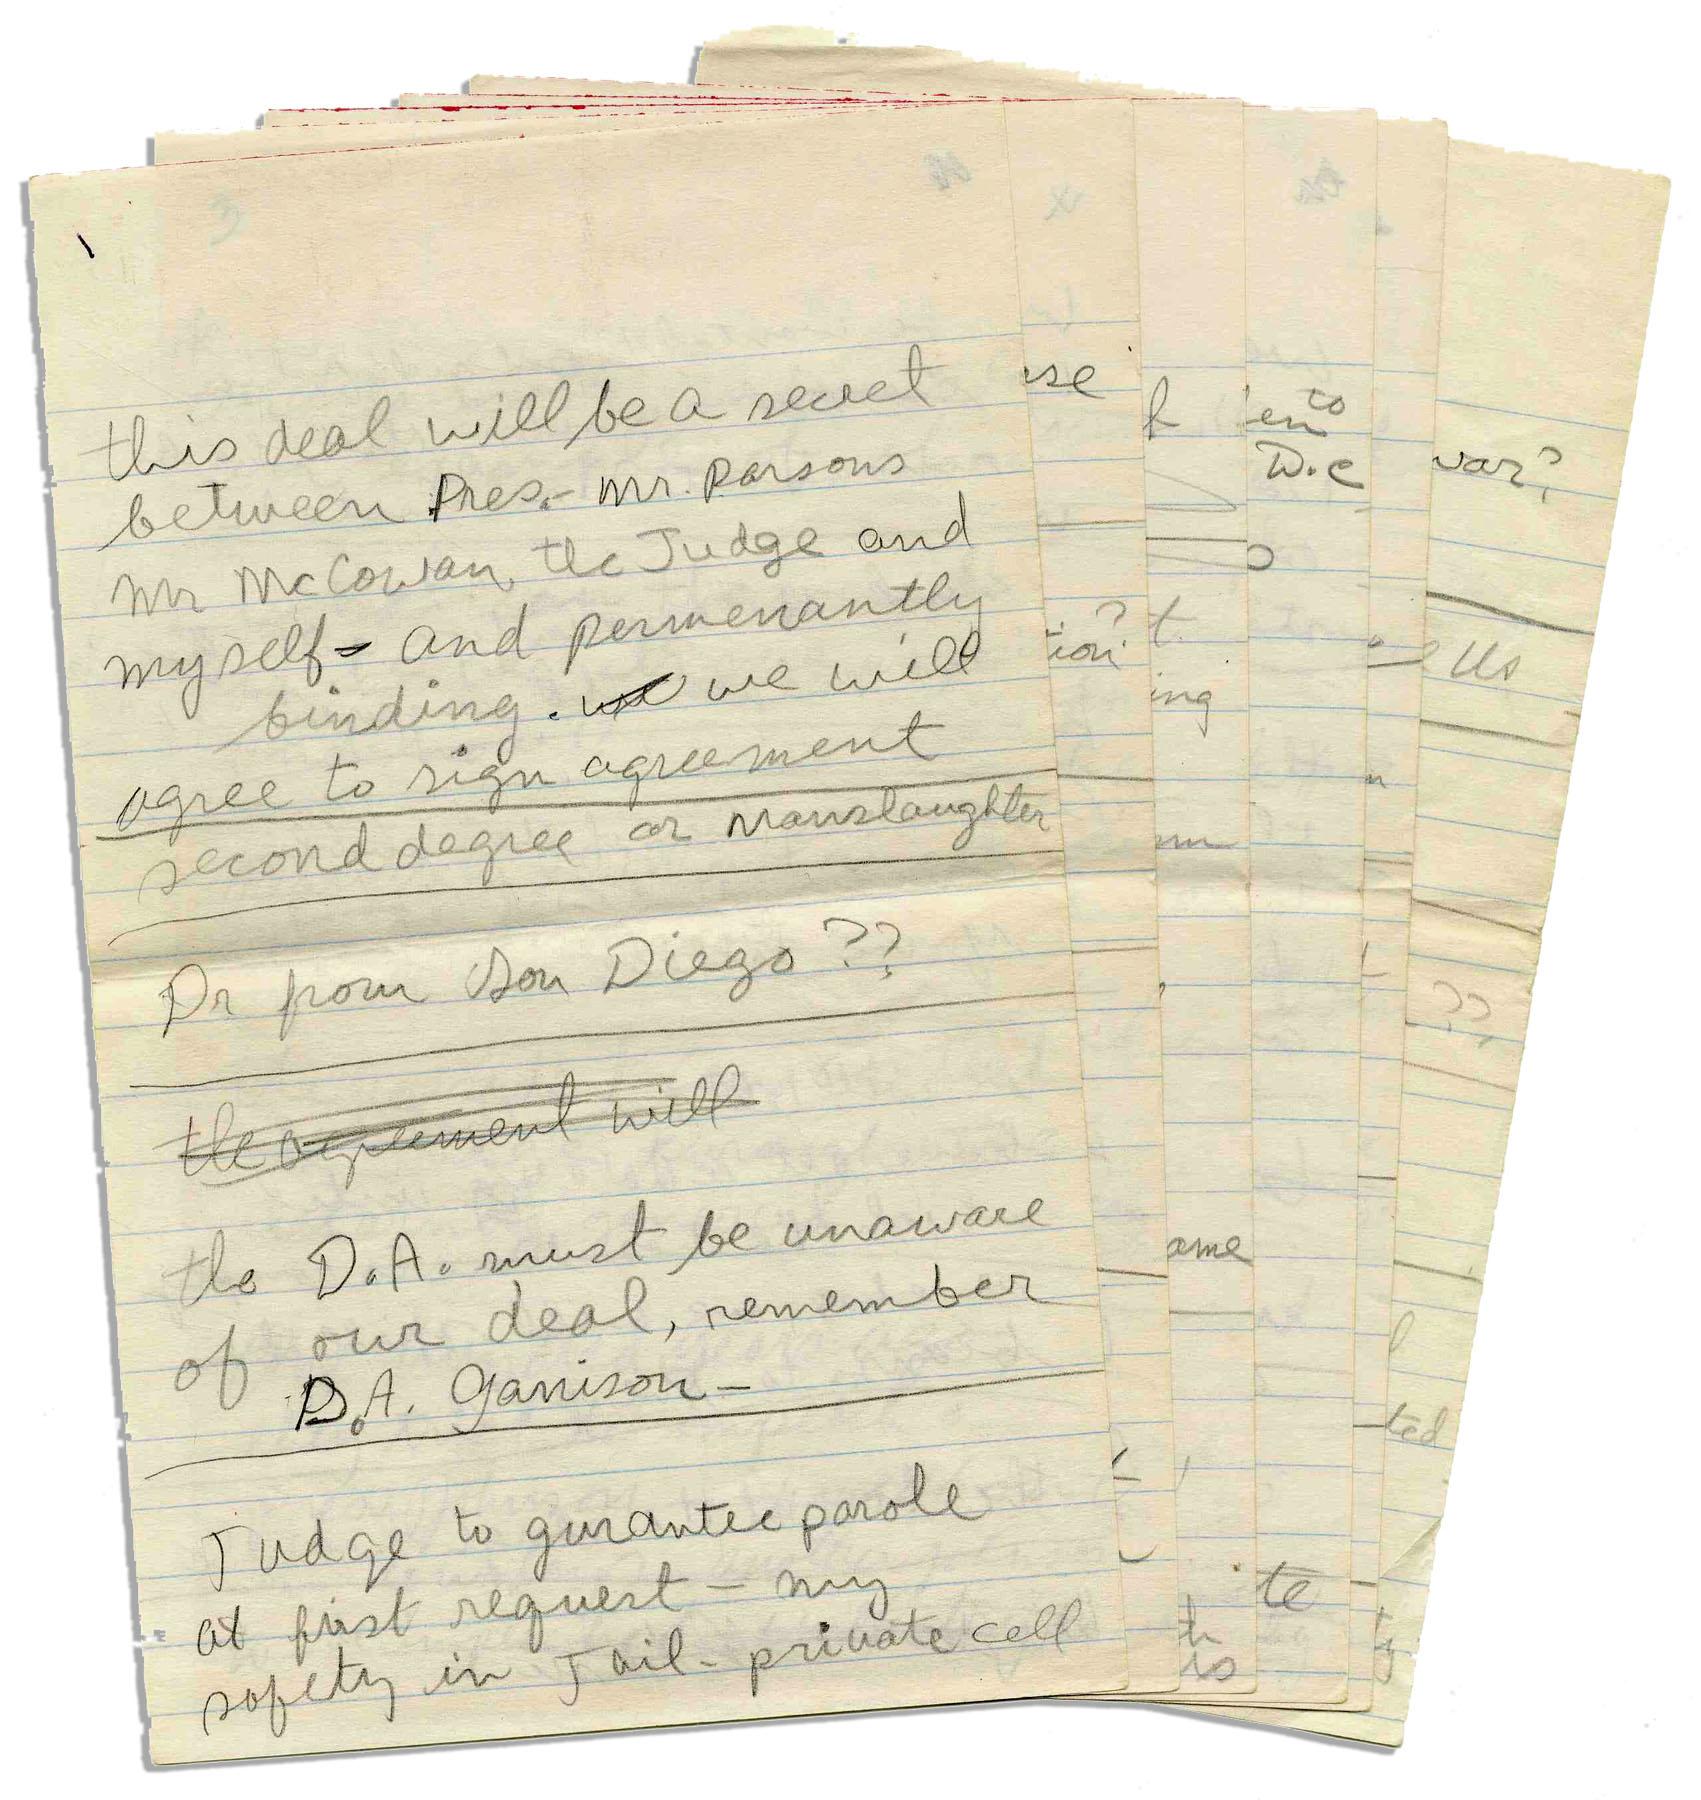 this deal will be a secret
between Pres.- Mr. Parsons
Mr McCowan, the Judge and
myself - and permenantly
binding. we we will
agree to sign agreement
second degree or Manslaughter
Dr from San Diego ??
the agreement will
the D.A. must be unaware
of our deal, remember
D.A. Garrison -
Judge to gurantee parole
at first request - my
safety in Jail - private cell
use
tion?
t.
ing
ame
th
is
to
en
D.C
te
war?
??
ted